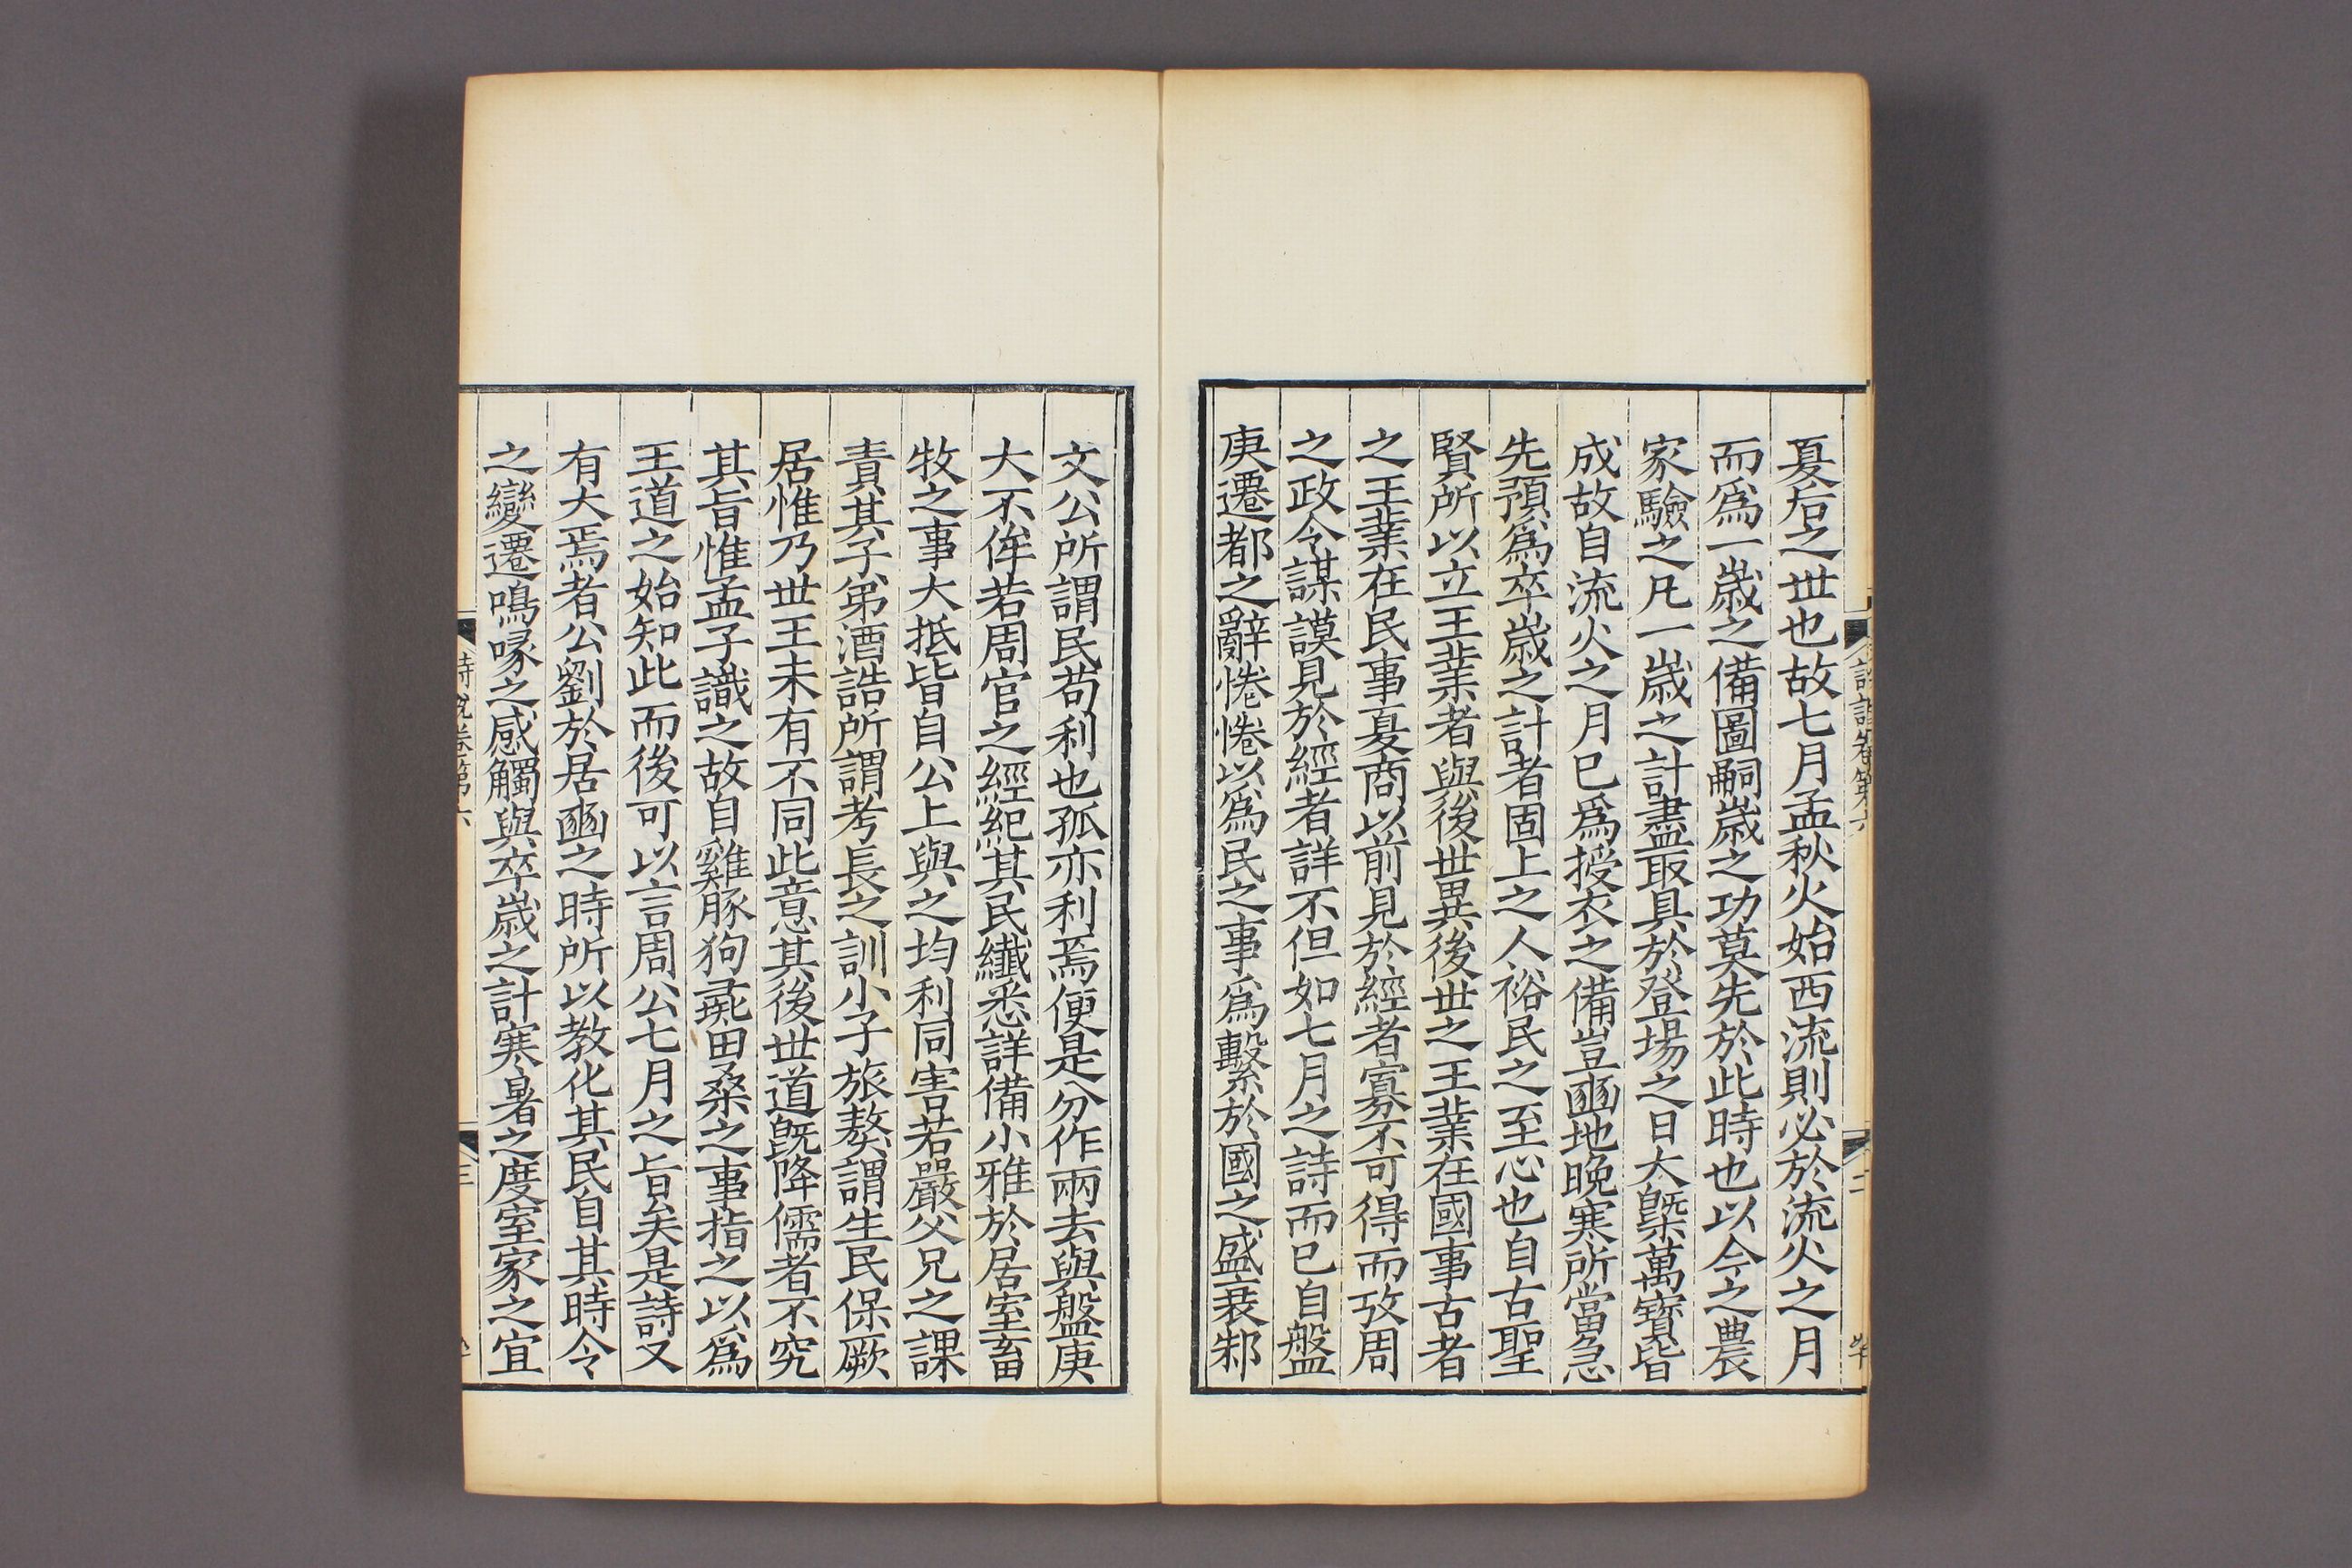 夏后之世也故七月孟秋火始西流則必於流火之月
而爲一歲之備圖嗣歲之功莫先於此時也以今之農
家驗之凡一歲之計盡取具於登場之日大槩萬寶皆
成故自流火之月已爲授衣之備豈豳地晚寒所當急
先預爲卒歲之計者固上之人裕民之至心也自古聖
賢所以立王業者與後世異後世之王業在國事古者
之王業在民事夏商以前見於經者寡不可得而攷周
之政令謀謨見於經者詳不但如七月之詩而已自盤
庚遷都之辭惓惓以爲民之事爲繫於國之盛衰邾
文公所謂民苟利也孤亦利焉便是分作兩去與盤庚
大不侔若周官之經紀其民纖悉詳備小雅於居室畜
牧之事大抵皆自公上與之均利同害若嚴父兄之課
責其子弟酒誥所謂考長之訓小子旅獒謂生民保厥
居惟乃世王未有不同此意其後世道既降儒者不究
其旨惟孟子識之故自雞豚狗彘田桑之事指之以爲
王道之始知此而後可以言周公七月之旨矣是詩又
有大焉者公劉於居豳之時所以教化其民自其時令
之變遷鳴喙之感觸與卒歲之計寒暑之度室家之宜
詩說卷第六
三